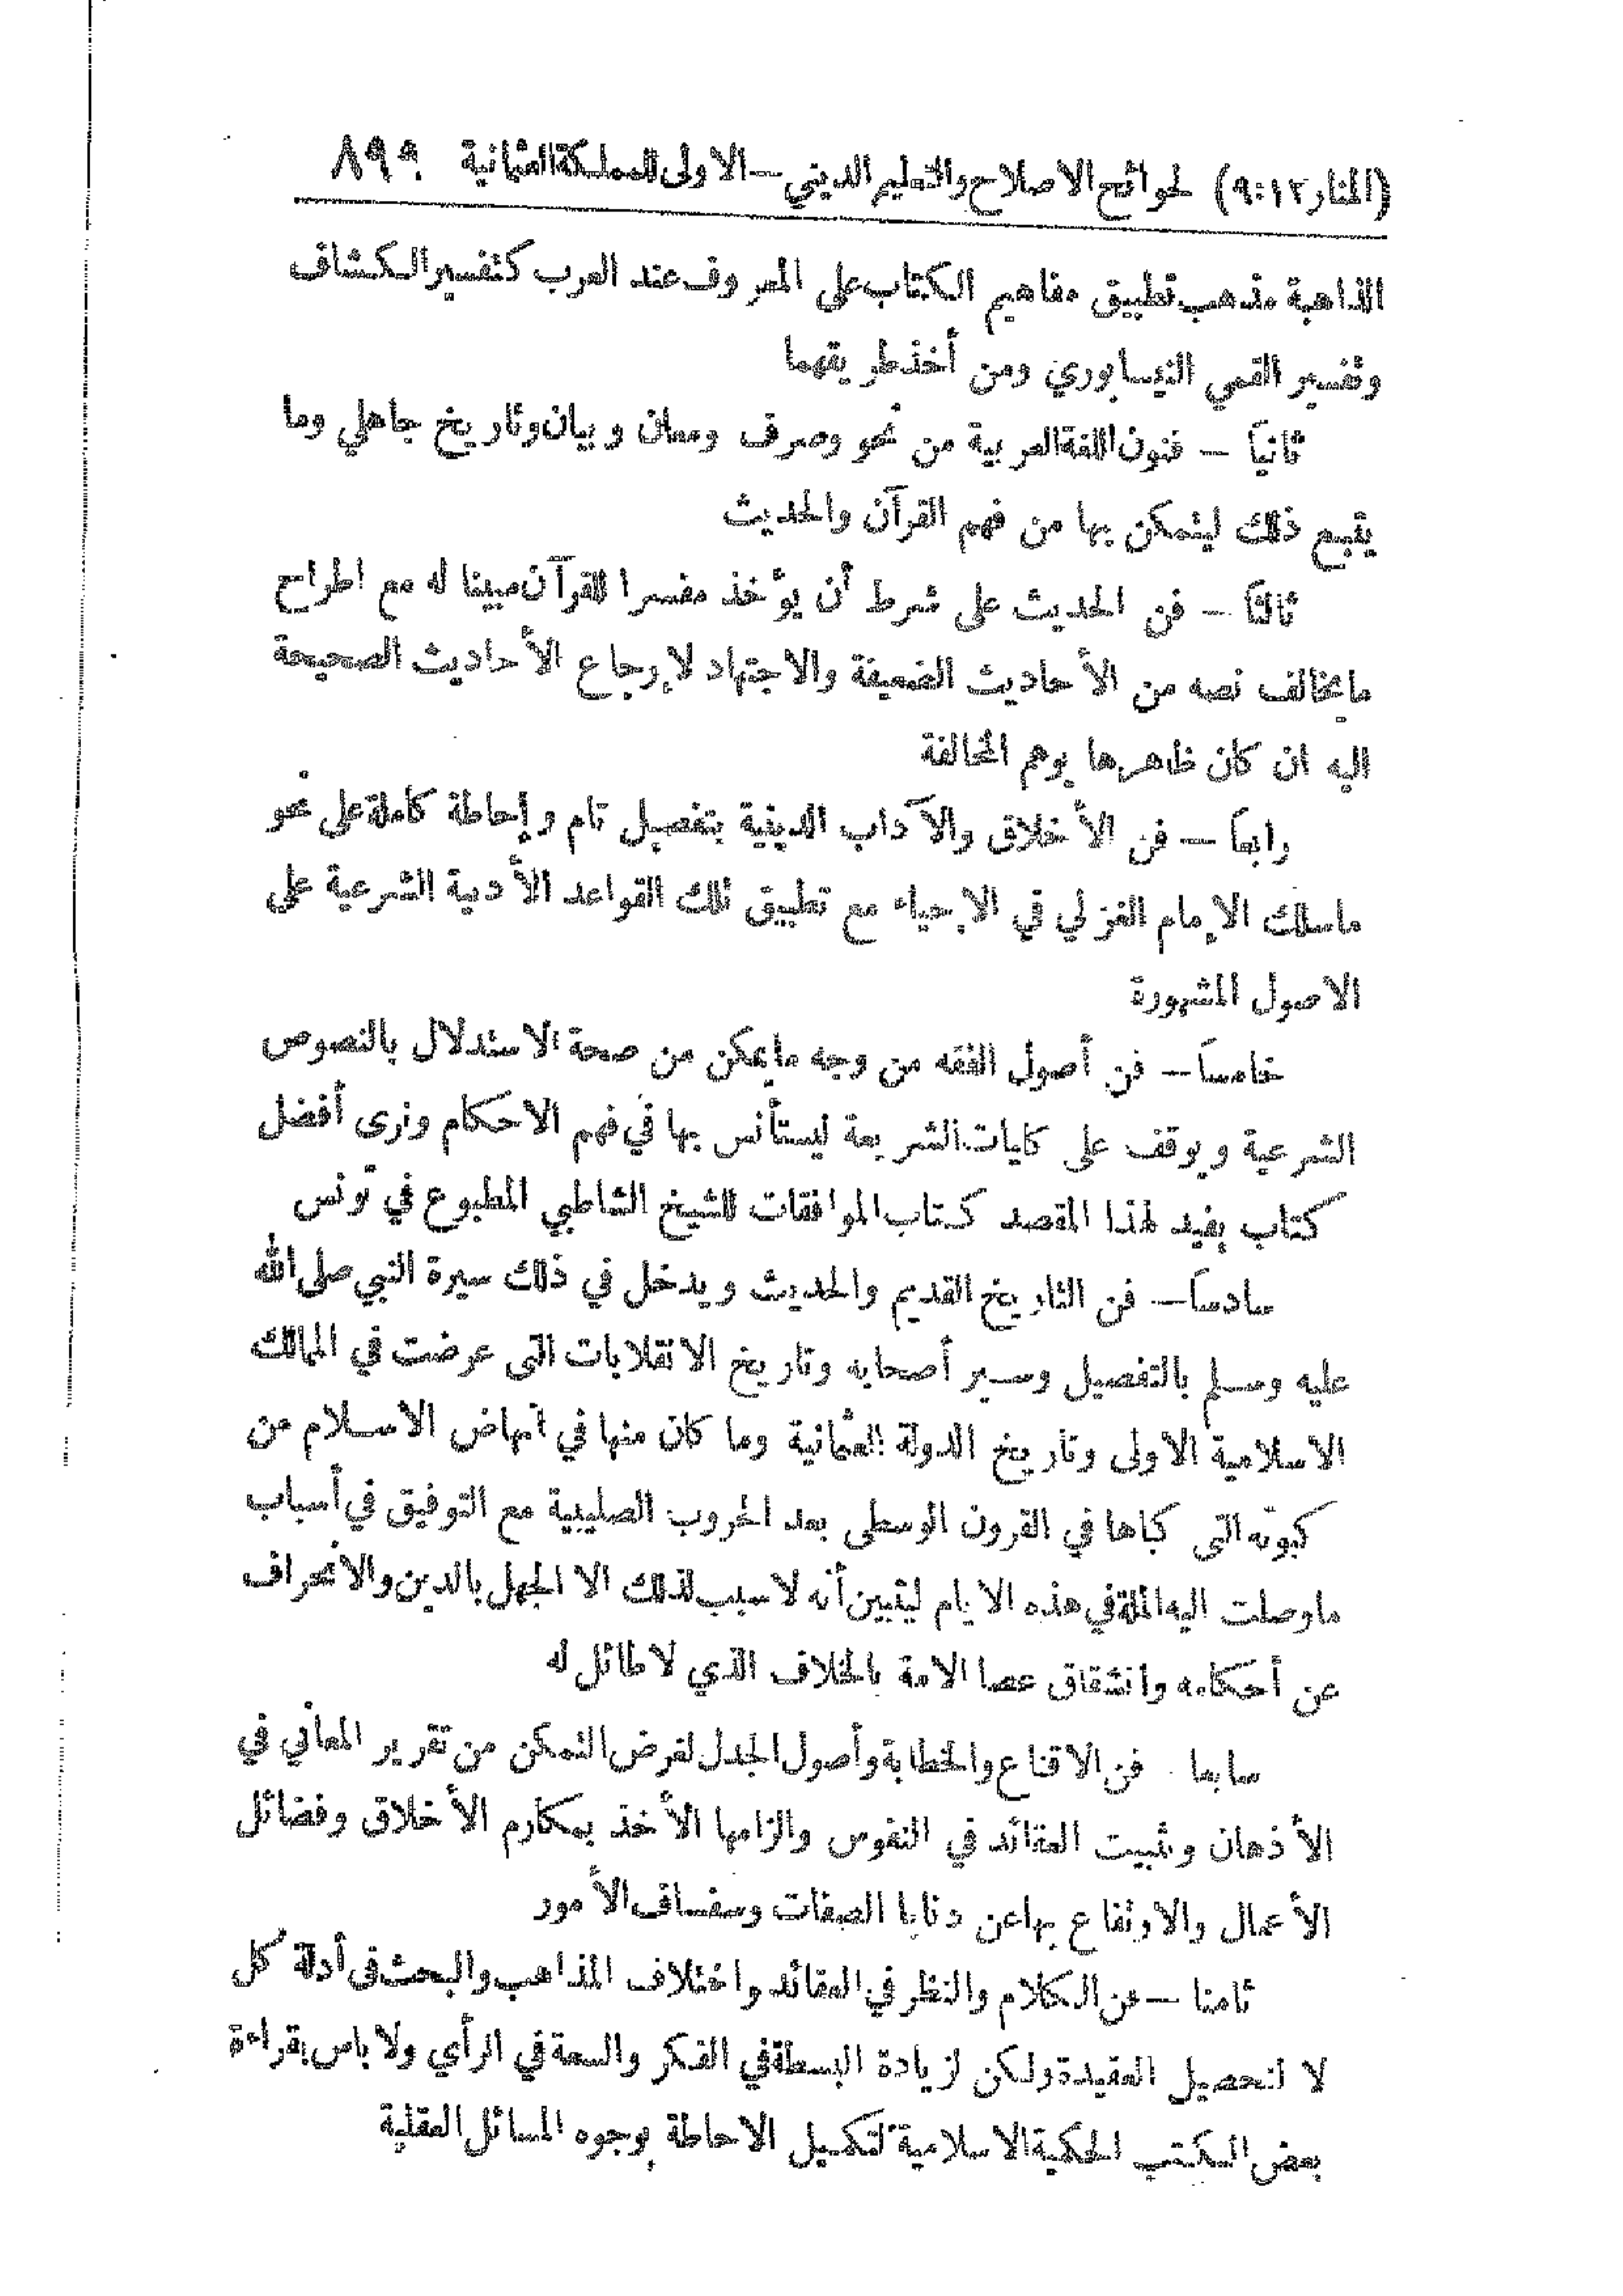 (المنار ٩:١٢) لحوائح الاصلاح والتعليم الديني — الاولى للمملكة العثمانية ٨٩٩
الذاهبة مذهب تطبيق مفاهيم الكتاب على المعروف عند العرب كتفسير الكشاف
وتفسير القمي النيسابوري ومن أخذ طريقهما
ثانياً — فنون اللغة العربية من نحو وصرف ومعان وبيان وتاريخ جاهلي وما
يتبع ذلك ليتمكن بها من فهم القرآن والحديث
ثالثاً — فن الحديث على شرط أن يؤخذ مفسرا للقرآن مبينا له مع اطراح
مايخالف نصه من الأحاديث الضعيفة والاجتهاد لإرجاع الأحاديث الصحيحة
اليه ان كان ظاهرها يوهم المخالفة
رابعاً — فن الأخلاق والآداب الدينية بتفصيل تام وإحاطة كاملة على نحو
ماسلك الإمام الغزلي في الإحياء مع تطبيق تلك القواعد الأدبية الشرعية على
الاصول المشهورة
خامساً — فن أصول الفقه من وجه مايمكن من صحة الاستدلال بالنصوص
الشرعية ويوقف على كليات الشريعة ليستأنس بها في فهم الاحكام ونرى أفضل
كتاب يفيد لهذا المقصد كتاب الموافقات للشيخ الشاطبي المطبوع في تونس
سادساً — فن التاريخ القديم والحديث ويدخل في ذلك سيرة النبي صلى الله
عليه وسلم بالتفصيل وسير أصحابه وتاريخ الانقلابات التى عرضت في الممالك
الاسلامية الاولى وتاريخ الدولة العثمانية وما كان منها في انهاض الاسلام من
كبوته التى كباها في القرون الوسطى بعد الحروب الصليبية مع التوفيق في أسباب
ماوصلت اليه الملة في هذه الايام ليتبين أنه لا سبب لذلك الا الجهل بالدين والانحراف
عن أحكامه وانشقاق عصا الامة بالخلاف الذي لاطائل له
سابعا فن الاقناع والخطابة وأصول الجدل لغرض التمكن من تقرير المعاني في
الأذهان وتثبيت العقائد في النفوس والزامها الأخذ بمكارم الأخلاق وفضائل
الأعمال والارتفاع بها عن دنايا الصفات وسفساف الأمور
ثامنا — فن الكلام والنظر في العقائد واختلاف المذاهب والبحث في أدلة كل
لا لتحصيل العقيدة ولكن لزيادة البسطة في الفكر والسعة في الرأي ولا باس بقراءة
بعض الكتب الحكمية الاسلامية لتكميل الاحاطة بوجوه المسائل العقلية